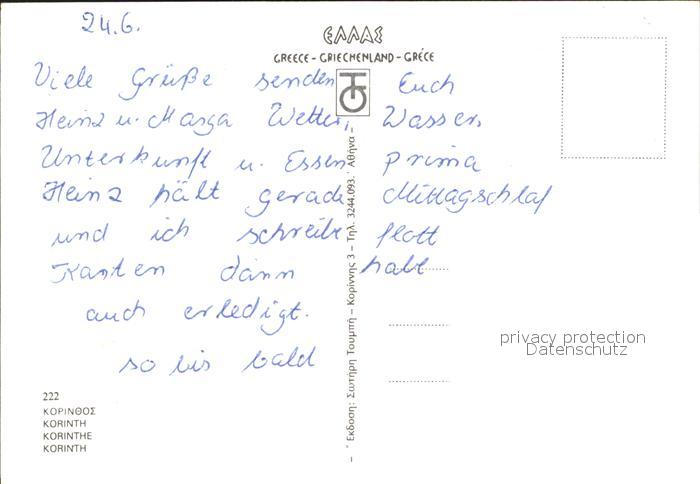 24.6.
ΕΛΛΑΣ
GREECE - GRIECHENLAND - GRÈCE
Viele Grüße senden Euch
Heinz u. Marga Wetter, Wasser,
Unterkunft u. Essen prima
Heinz hält gerade Mittagschlaf
und ich schreibe flott
Karten dann habe
auch erledigt.
so bis bald
222
ΚΟΡΙΝΘΟΣ
KORINTH
KORINTHE
KORINTH
Έκδοση: Σωτήρη Τουμπή – Κορίννης 3 – Τηλ. 3244.093. Αθήνα –
privacy protection
Datenschutz